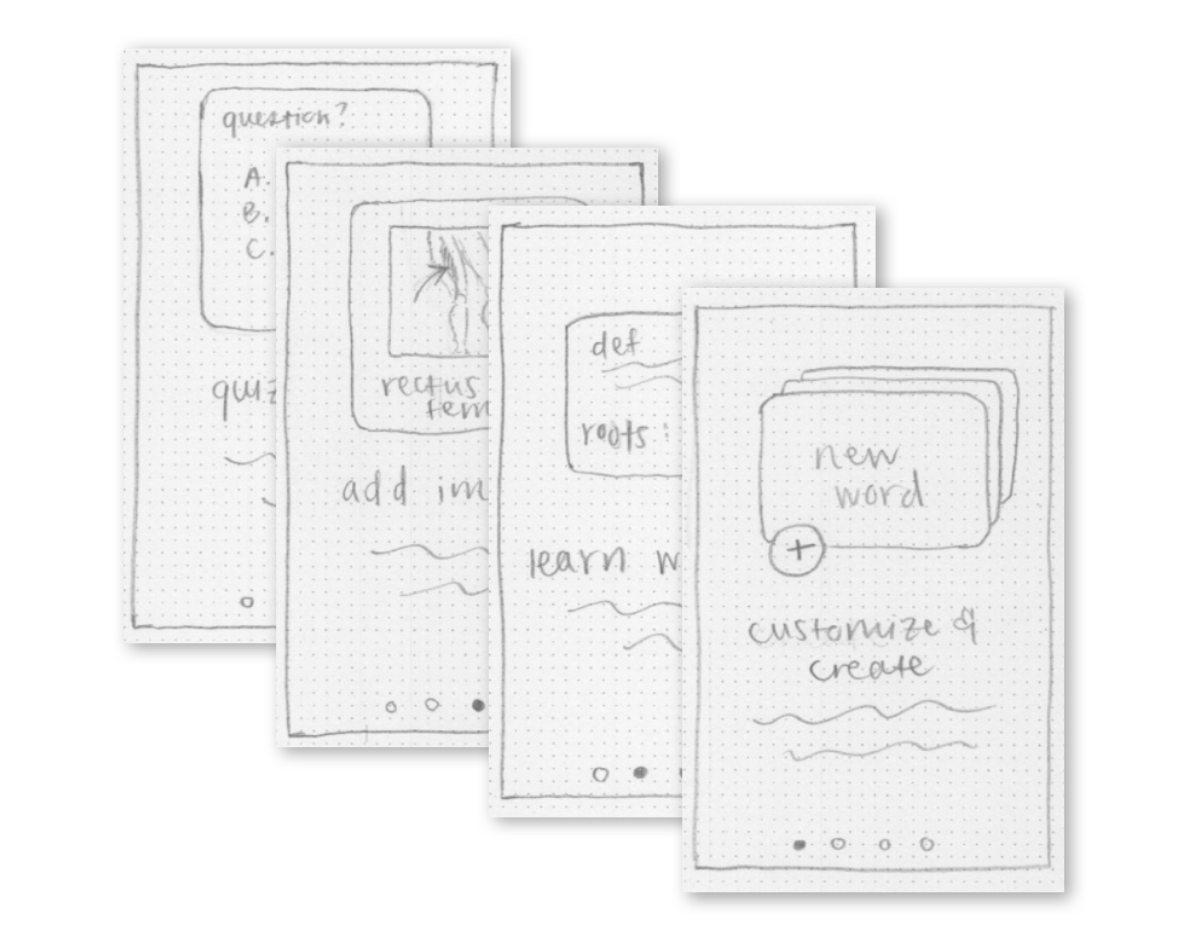 question?
A.
B.
C.
quiz
rectus
fem
add im
def
roots:
learn w
new
word
+
customize &
create